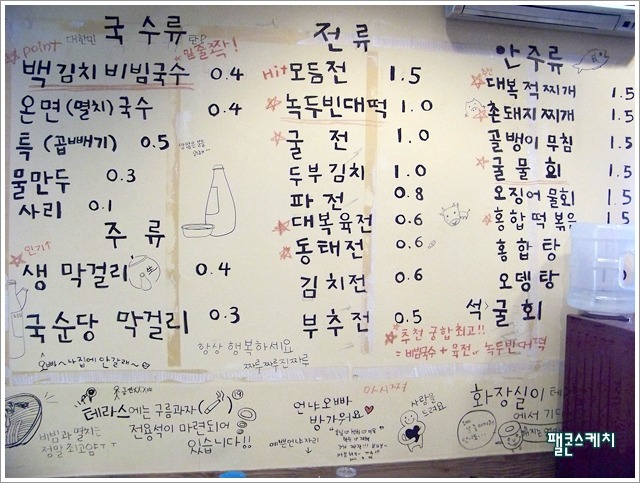 국수류
point
대한민
밑줄쫙!
백김치비빔국수 0.4
온면(멸치)국수 0.4
특 (곱빼기) 0.5
물만두 0.3
사리 0.1
주류
인기↑
생 막걸리 0.4
국순당 막걸리 0.3
오빠~나집에 안갈래~
항상 행복하세요
찌루찌루진짜루
전류
Hit 모듬전 1.5
녹두빈대떡 1.0
굴 전 1.0
두부김치 1.0
파전 0.8
대복육전 0.6
동태전 0.6
김치전 0.6
부추전 0.5
안주류
대복적찌개 1.5
촌돼지찌개 1.5
골뱅이 무침 1.5
굴물회 1.5
오징어 물회 1.5
홍합떡볶음 1.5
홍합탕
오뎅탕
석> 굴회
추천 궁합최고!!
= 비빔국수 + 육전 or 녹두빈대떡
비빔과 멸치는
정말 최고얌ㅜㅜ
테라스에는 구름과자( )
전용석이 마련되어
있습니다!!
마시쪄
언냐오빠
방가워요
예쁜언냐사리
사랑을
드려요
화장실이 테
에서 기다
팰콘스케치